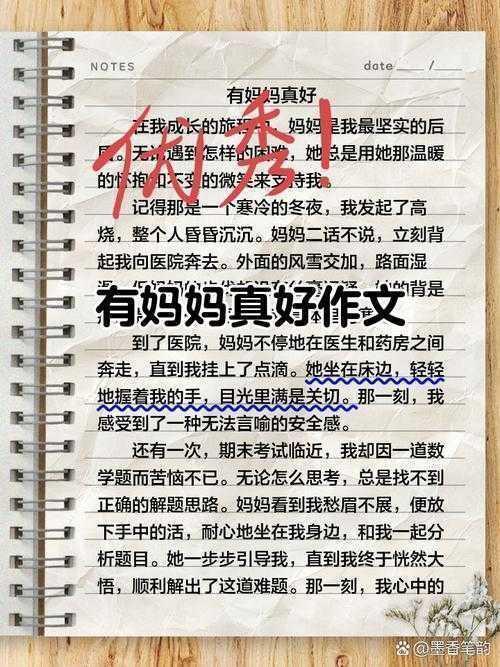 NOTES date ____ / ____
有妈妈真好
优秀!
在我成长的旅 妈妈是我最坚实的后
。无 遇到怎样的困难,她总是用她那温暖
的怀抱和不变的微笑来支持我。
记得那是一个寒冷的冬夜,我发起了高
烧,整个人昏昏沉沉。妈妈二话不说,立刻背
起我向医院奔去。外面的风雪交加,路面湿
的背是
有妈妈真好作文
到了医院,妈妈不停地在医生和药房之间
奔走,直到我挂上了点滴。她坐在床边,轻轻
地握着我的手,目光里满是关切。那一刻,我
感受到了一种无法言喻的安全感。
还有一次,期末考试临近,我却因一道数
学题而苦恼不已。无论怎么思考,总是找不到
正确的解题思路。妈妈看到我愁眉不展,便放
下手中的活,耐心地坐在我身边,和我一起分
析题目。她一步步引导我,直到我终于恍然大
悟,顺利解出了这道难题。那一刻,我心中的
@墨香笔韵